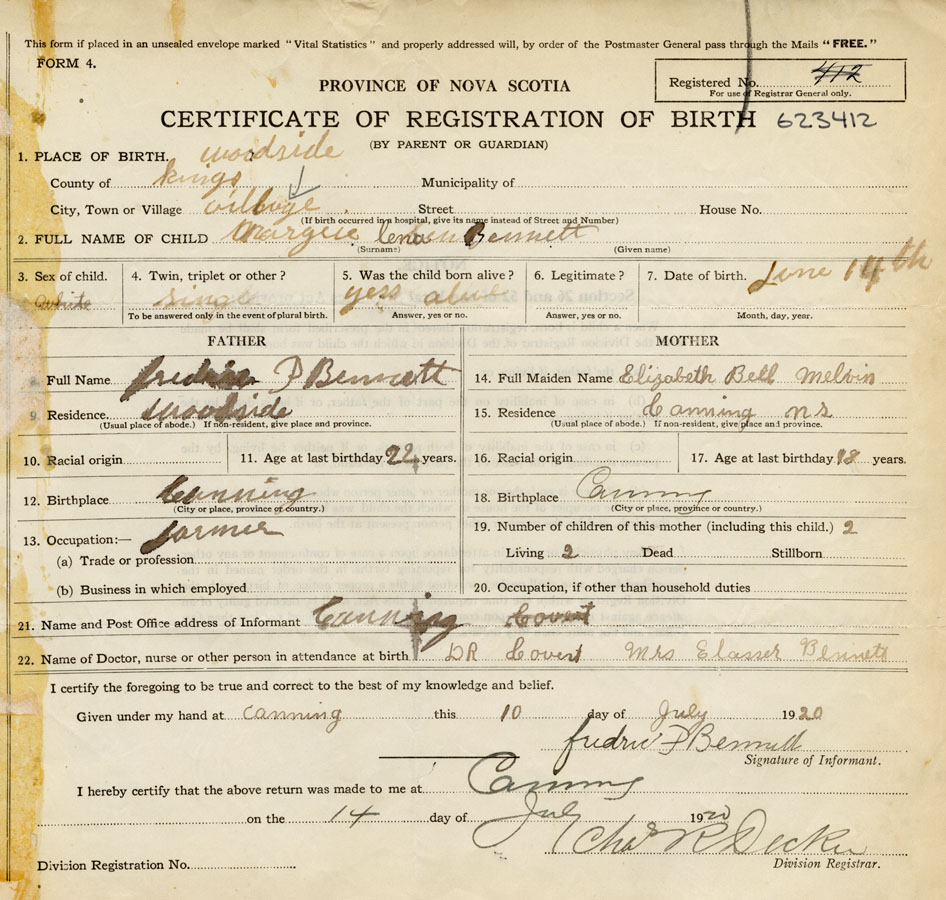 This form if placed in an unsealed envelope marked "Vital Statistics" and properly addressed will, by order of the Postmaster General pass through the Mails "FREE."
FORM 4.
Registered No. 412
For use of Registrar General only.
PROVINCE OF NOVA SCOTIA
CERTIFICATE OF REGISTRATION OF BIRTH 623412
(BY PARENT OR GUARDIAN)
1. PLACE OF BIRTH. woodside
County of kings Municipality of
City, Town or Village village Street House No.
(If birth occurred in a hospital, give its name instead of Street and Number)
2. FULL NAME OF CHILD Margie Lena Bennett
(Surname) (Given name)
3. Sex of child. 4. Twin, triplet or other? 5. Was the child born alive? 6. Legitimate? 7. Date of birth. June 14th
white single yess alive
To be answered only in the event of plural birth. Answer, yes or no. Answer, yes or no. Month, day, year.
FATHER MOTHER
8. Full Name fredric P Bennett 14. Full Maiden Name Elizabeth Bell Melvin
9. Residence woodside 15. Residence Canning ns
(Usual place of abode.) If non-resident, give place and province. (Usual place of abode.) If non-resident, give place and province.
10. Racial origin 11. Age at last birthday 22 years. 16. Racial origin 17. Age at last birthday 18 years.
12. Birthplace Canning 18. Birthplace Canning
(City or place, province or country.) (City or place, province or country.)
13. Occupation:— farmer 19. Number of children of this mother (including this child.) 2
(a) Trade or profession Living 2 Dead Stillborn
(b) Business in which employed 20. Occupation, if other than household duties
21. Name and Post Office address of Informant Canning Covert
22. Name of Doctor, nurse or other person in attendance at birth DR Covert Mrs Elasser Bennett
I certify the foregoing to be true and correct to the best of my knowledge and belief.
Given under my hand at canning this 10 day of July 1920
fredric P Bennett
Signature of Informant.
I hereby certify that the above return was made to me at Canning
on the 14 day of July 1920
Chas R Decker
Division Registrar.
Division Registration No.